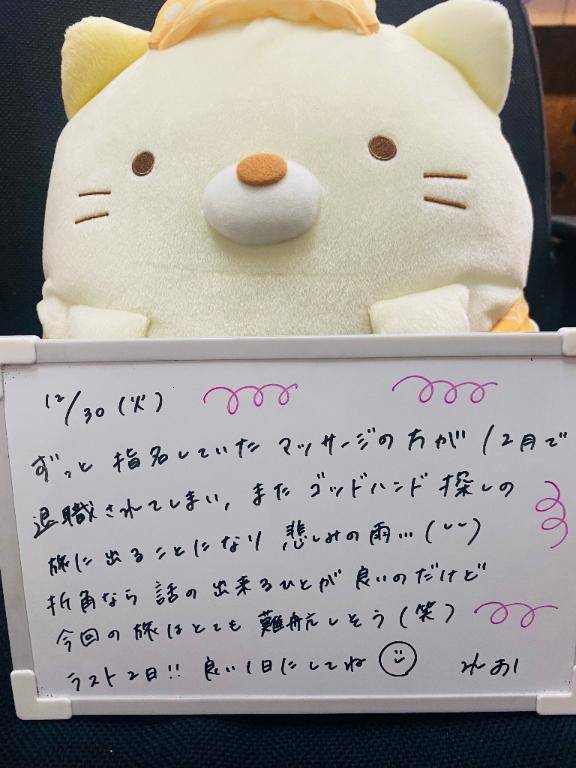 12/30(火)
ずっと指名していたマッサージの方が12月で
退職されてしまい、またゴッドハンド探しの
旅に出ることになり悲しみの雨…(ᵕᵕ)
折角なら話の出来るひとが良いのだけど
今回の旅はとても難航しそう(笑)
ラスト2日!!良い1日にしてね